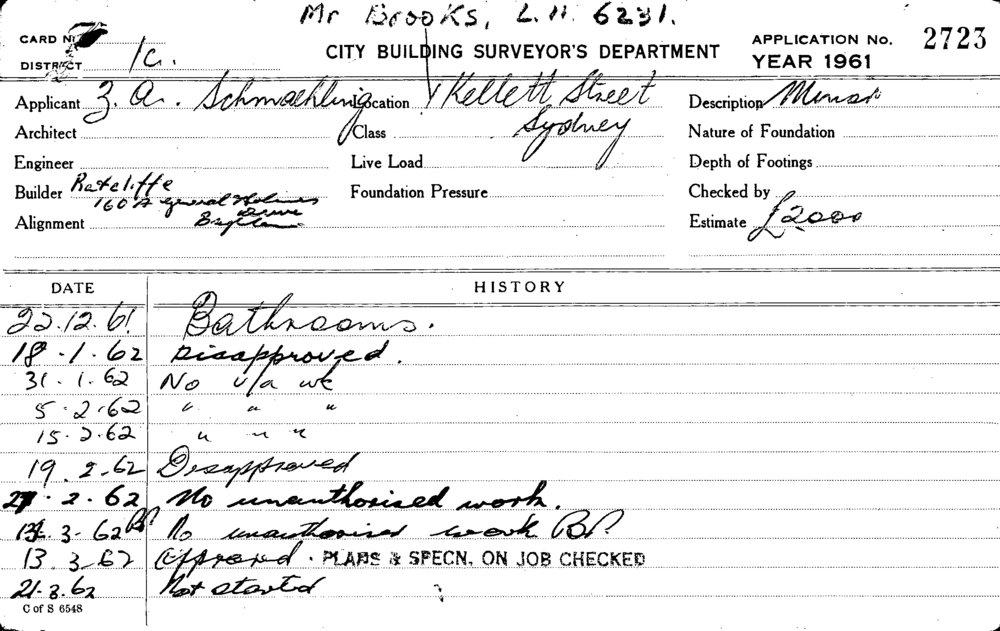 Mr Brooks, L.H. 6231.
CARD No.
CITY BUILDING SURVEYOR'S DEPARTMENT
APPLICATION No. 2723
DISTRICT 1c.
YEAR 1961
Applicant Z. A. Schmaehling Location Kellett Street
Sydney
Description Minor
Architect
Class
Nature of Foundation
Engineer
Live Load
Depth of Footings
Builder Ratcliffe
160A General Holmes
Drive
Foundation Pressure
Checked by
Alignment
Estimate £2000
DATE HISTORY
22.12.61 Bathrooms.
18.1.62 Disapproved.
31.1.62 No u/a wk
5.2.62 " " "
15.2.62 " " "
19.2.62 Disapproved
2.62 No unauthorised work.
3-62 BP No unauthorised work BP
13.3-62 Approved. PLANS & SPECN. ON JOB CHECKED
21.3.62 Not started
C of S 6548